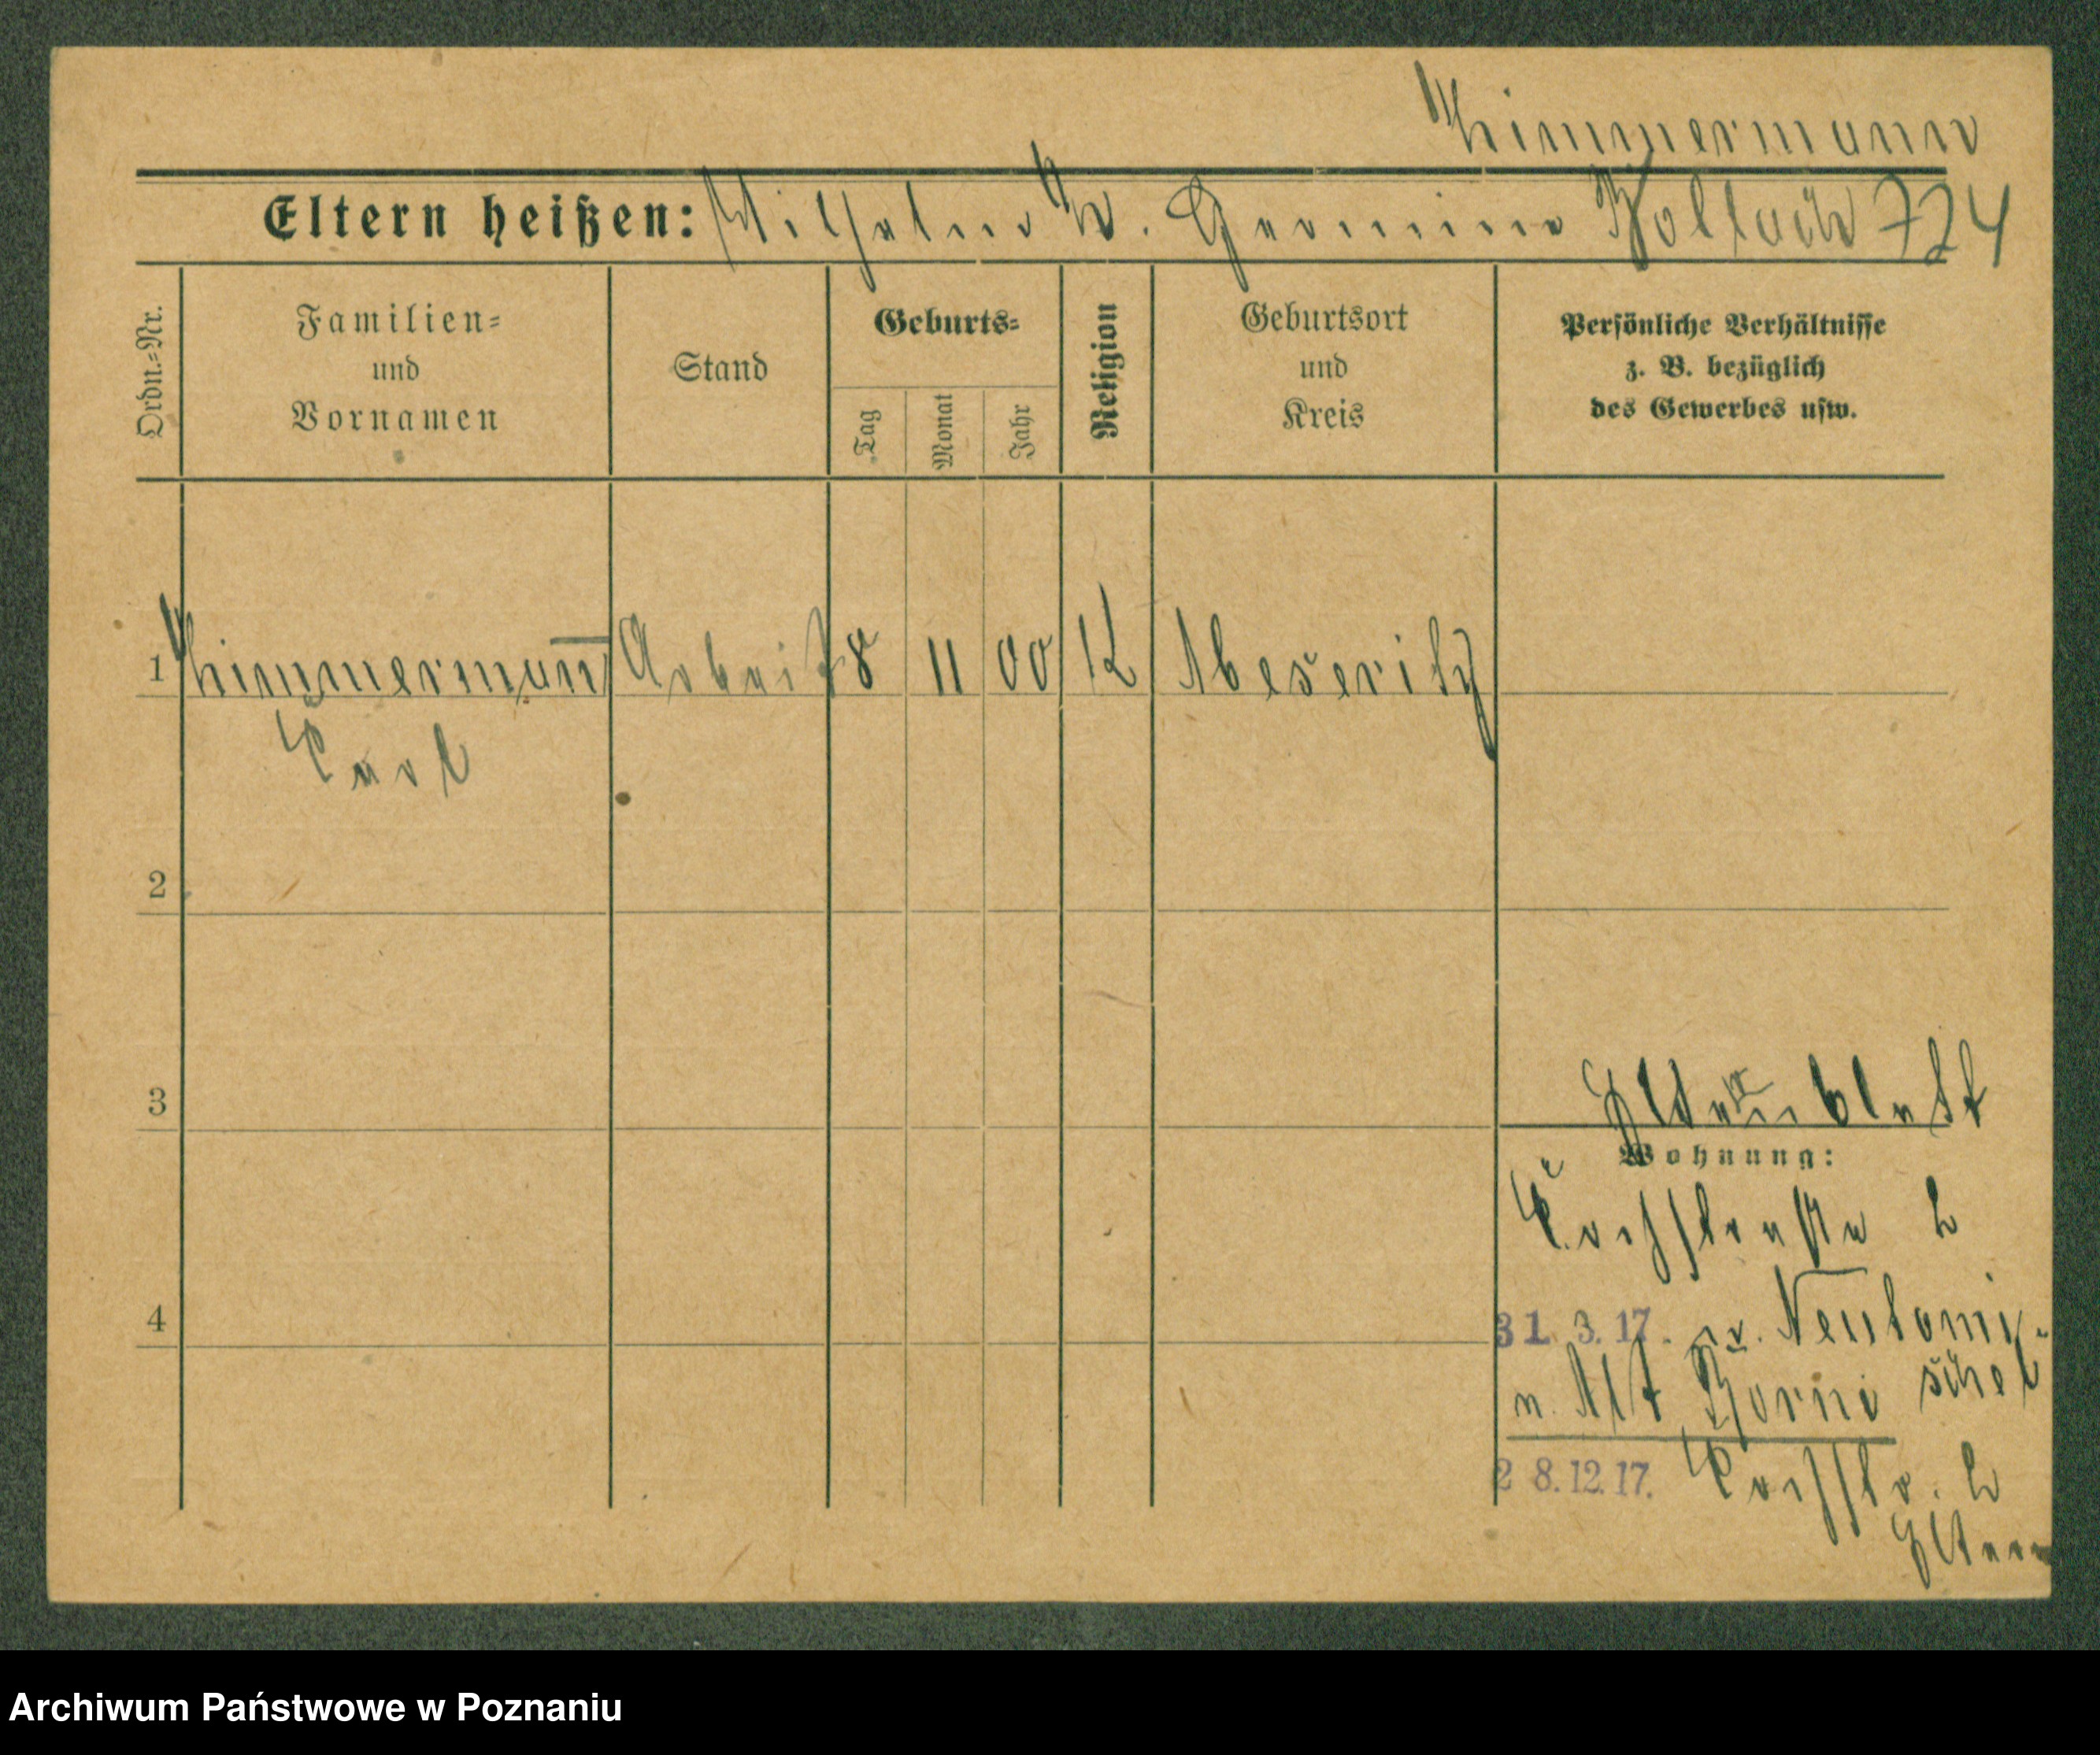 Zimmermann
Eltern heißen: Wilhelm u. Hermine Kollack 724
Ordn.=Nr.
Familien=
und
Vornamen
Stand
Geburts=
Tag
Monat
Jahr
Religion
Geburtsort
und
Kreis
Persönliche Verhältnisse
z. B. bezüglich
des Gewerbes usw.
1 Zimmermann Arbeit 8 11 00 K Meseritz
Carl
2
3
Wohnung:
2
4
31. 3. 17. Neutomi-
n. Alt schel
28.12.17. 2
Eltern
Archiwum Państwowe w Poznaniu